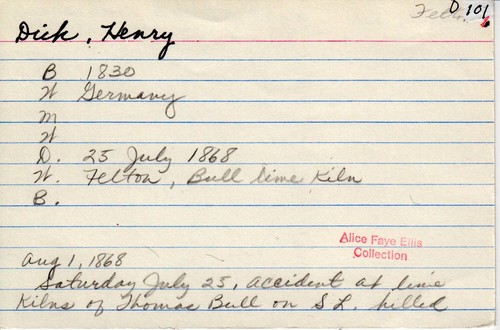 D 101
Felt
Dick, Henry
B 1830
W Germany
M
W
D. 25 July 1868
W. Felton, Bull lime Kiln
B.
Alice Faye Ellis
Collection
Aug 1, 1868
Saturday July 25, accident at lime
Kilns of Thomas Bull on S L. killed